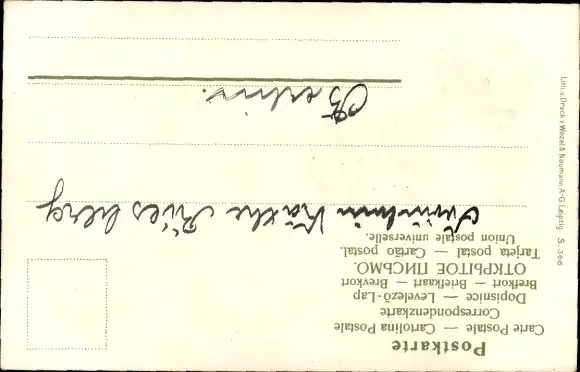 Postkarte
Carte Postale — Cartolina Postale
Correspondenzkarte
Dopisnice — Levelező-Lap
Brefkort — Briefkaart — Brevkort
ОТКРЫТОЕ ПИСЬМО.
Tarjeta postal — Cartão postal.
Union postale universelle.
Fräulein Käthe Riesberg
Berlin.
Lith. u. Druck v. Wezel & Naumann A-G. Leipzig S. 366